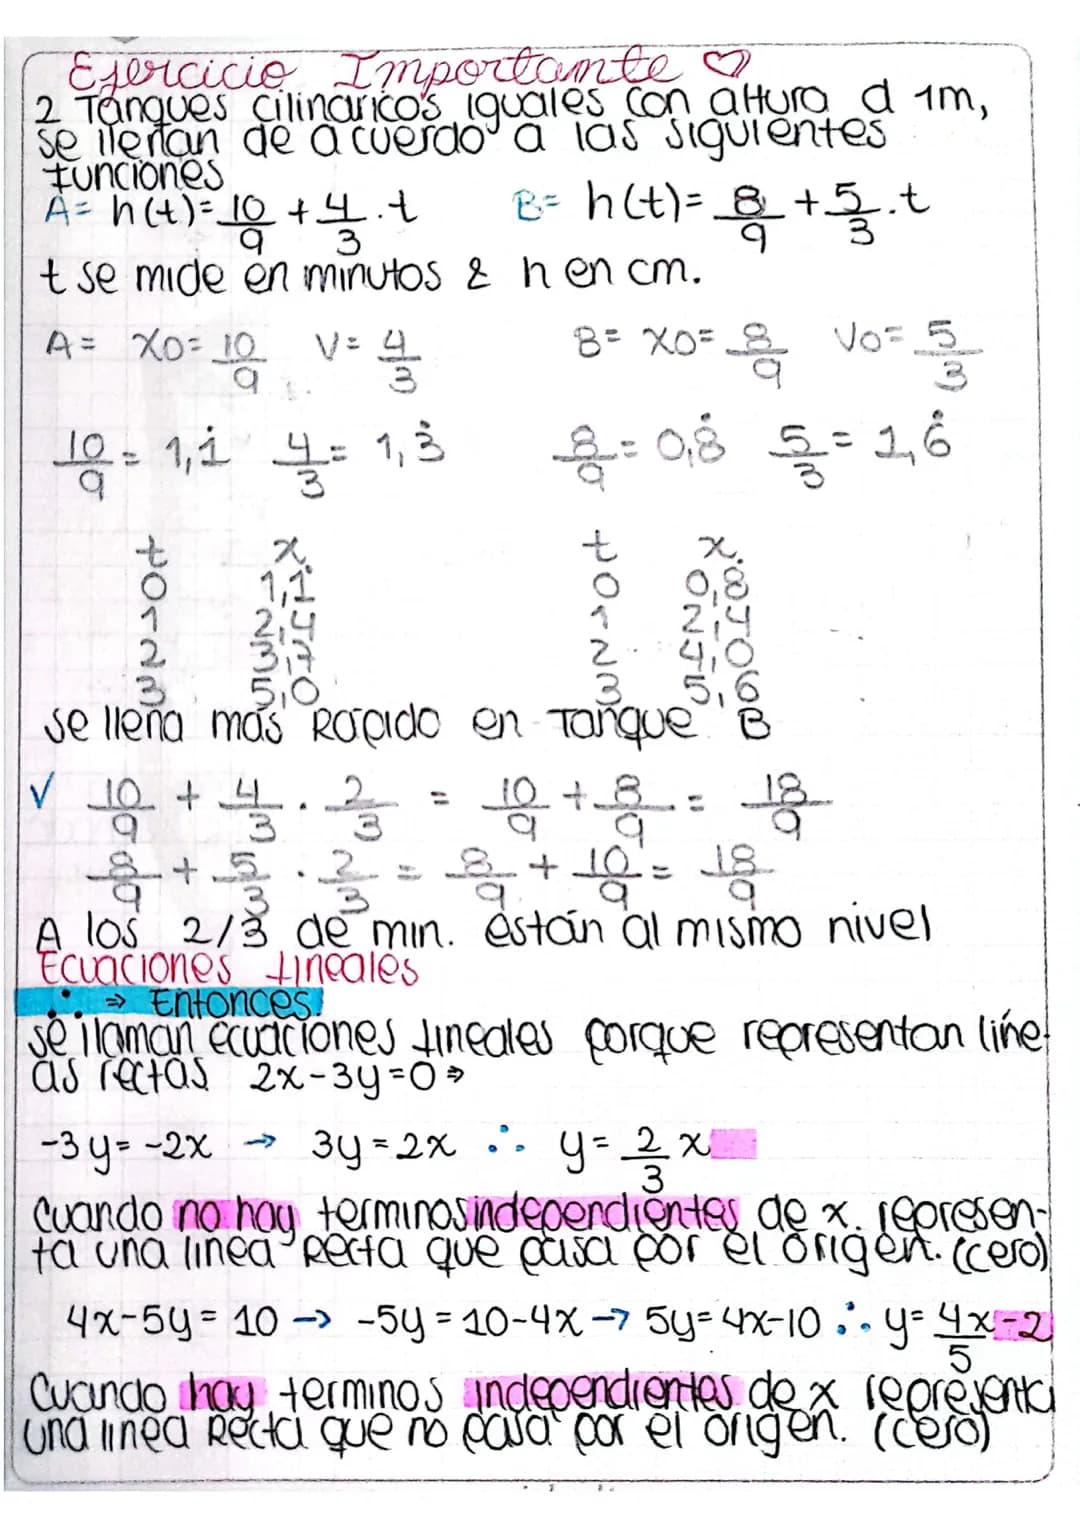 Ejercicio Importante ♡
2 Tanques cilindricos iguales con altura d 1m,
se llenan de acuerdo a las siguientes
funciones
A= h(t)= 10/9 + 4/3 . t B= h(t)= 8/9 + 5/3 . t
t se mide en minutos & h en cm.
A= X0= 10/9 V= 4/3 B= X0= 8/9 V0= 5/3
10/9 = 1,1̇ 4/3 = 1,3̇ 8/9 = 0,8̇ 5/3 = 1,6̇
t x t x
0 1,1 0 0,8
1 2,4 1 2,4
2 3,7 2 4,0
3 5,0 3 5,6
se llena más Rápido en Tanque B
✓ 10/9 + 4/3 . 2/3 = 10/9 + 8/9 = 18/9
8/9 + 5/3 . 2/3 = 8/9 + 10/9 = 18/9
A los 2/3 de min. están al mismo nivel
Ecuaciones lineales
∴ ⇒ Entonces.
se llaman ecuaciones lineales porque representan líne-
as rectas 2x-3y=0 ⇒
-3y= -2x → 3y=2x ∴ y= 2/3 x
Cuando no hay terminos independientes de x. represen-
ta una linea Recta que pasa por el origen. (cero)
4x-5y= 10 → -5y=10-4x → 5y=4x-10 ∴ y= 4x/5 -2
Cuando hay terminos independientes de x representa
una linea Recta que no pasa por el origen. (cero)